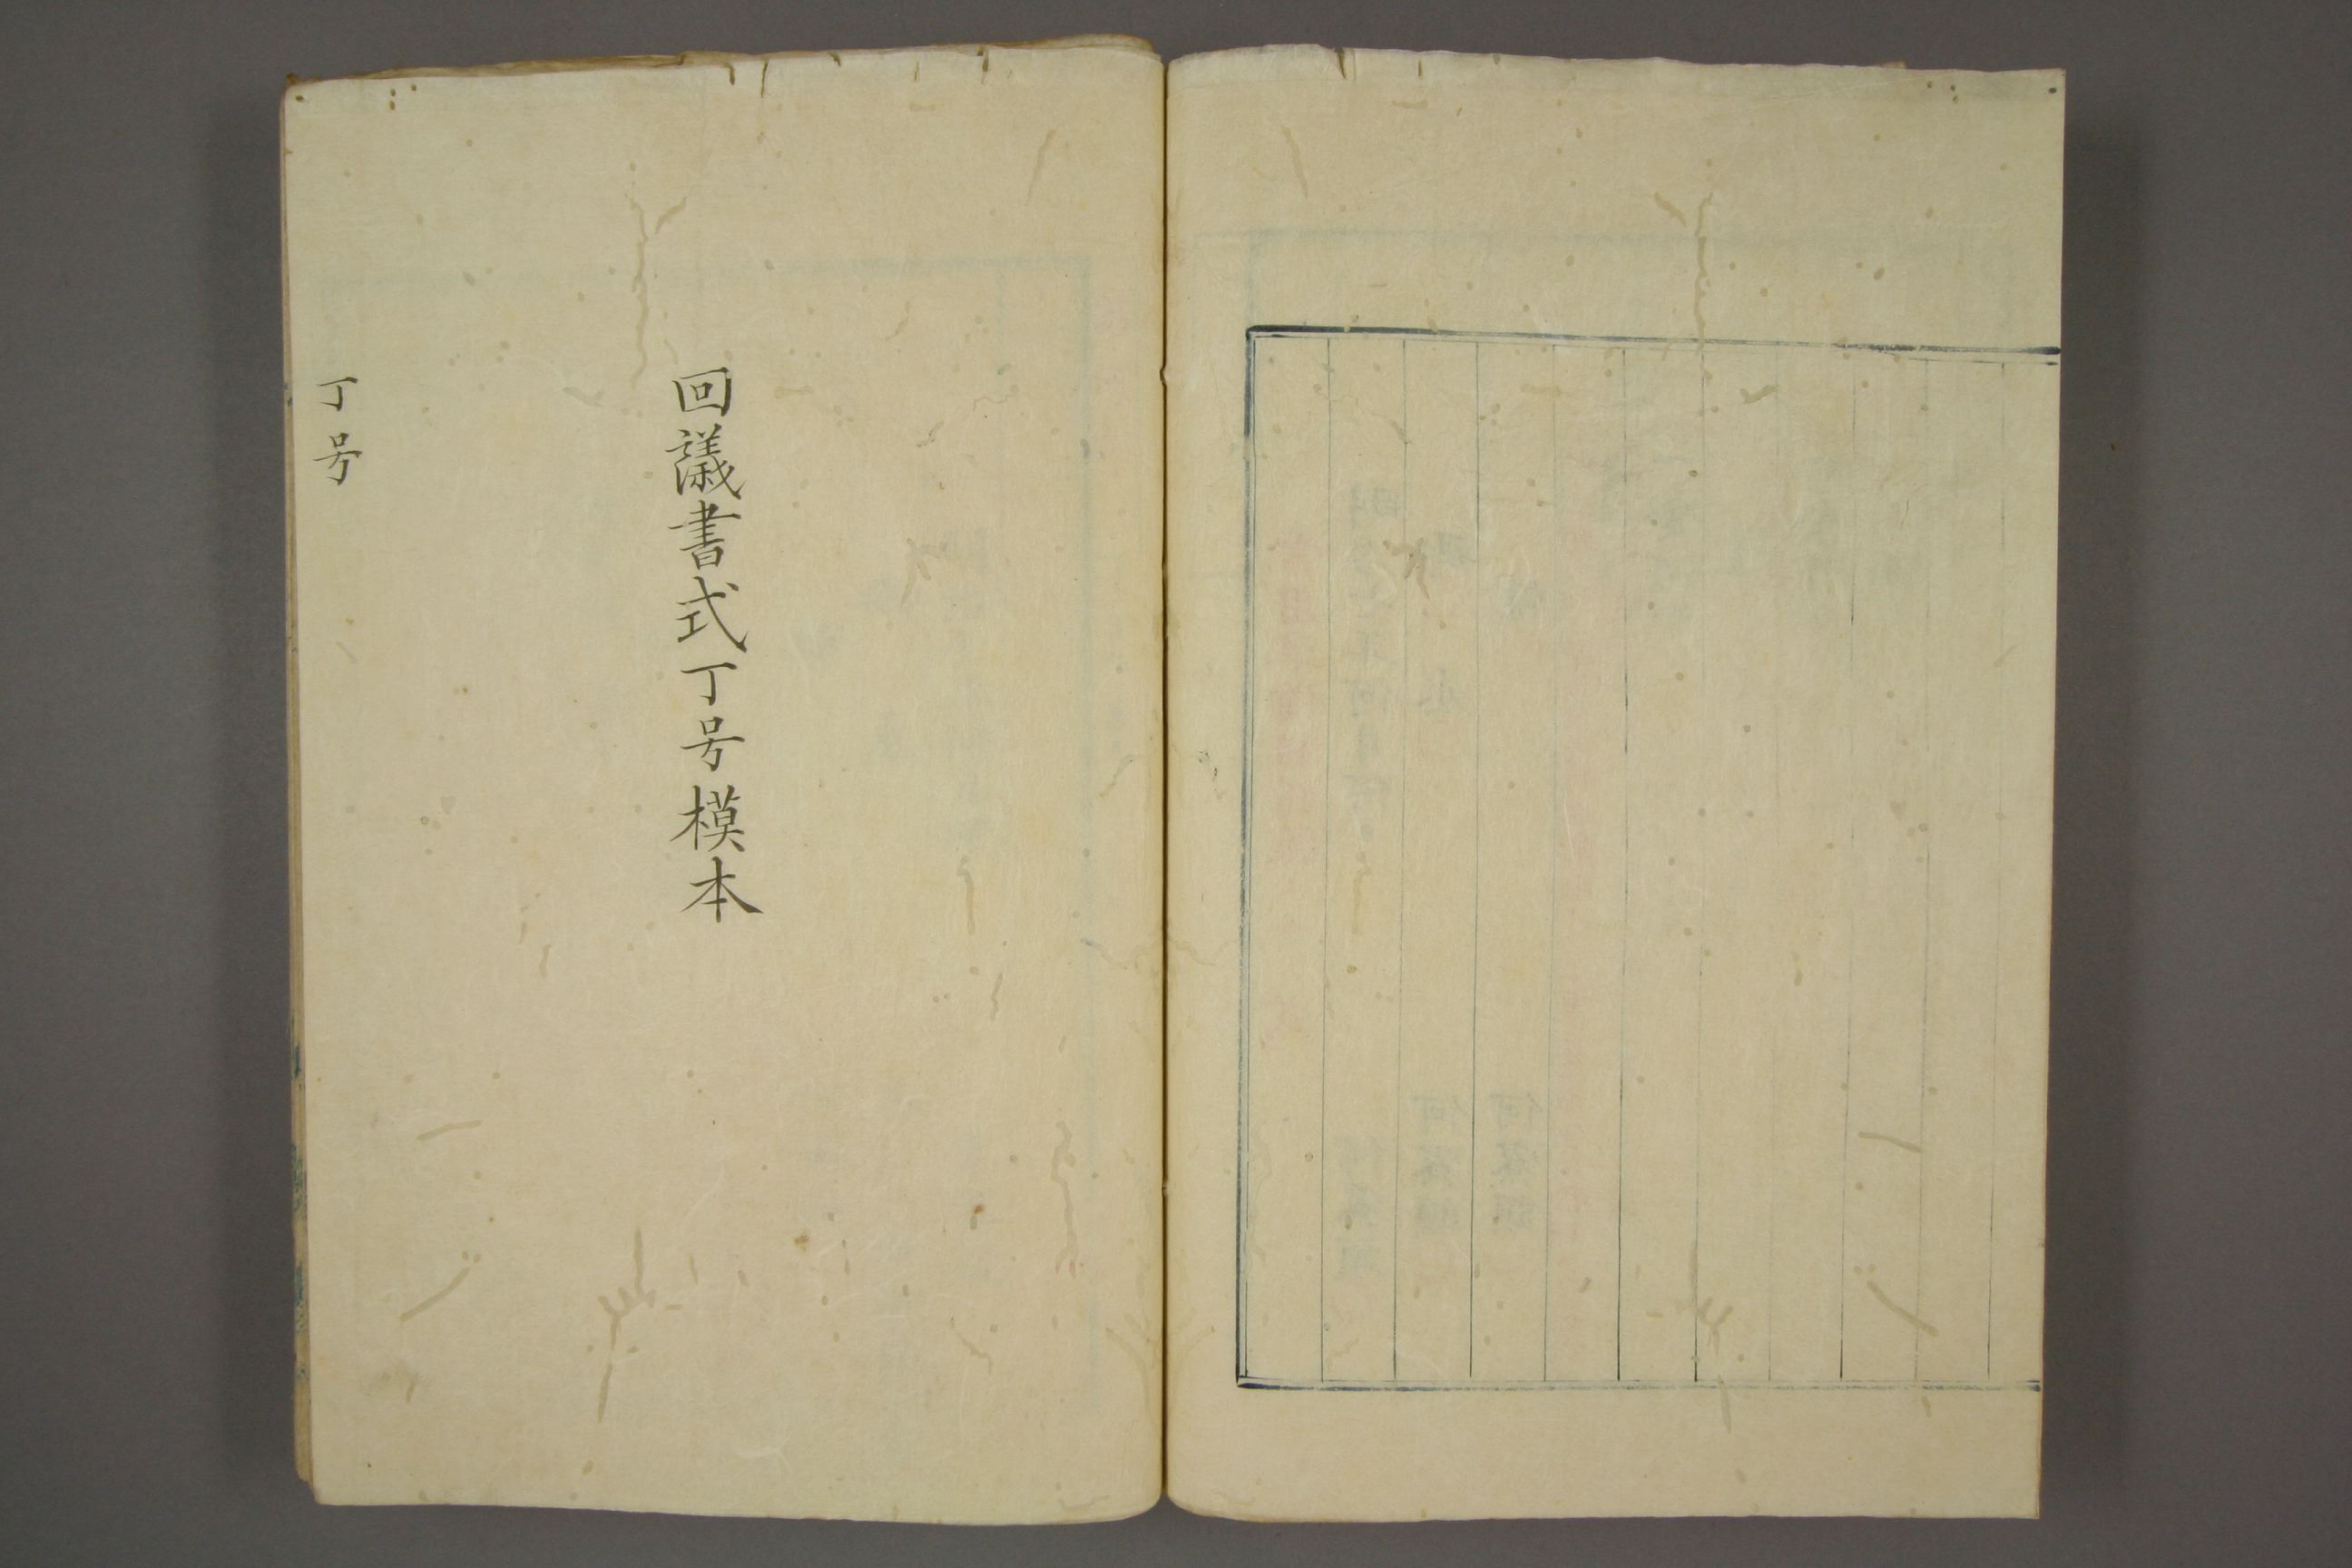 回議書式丁号模本
丁号